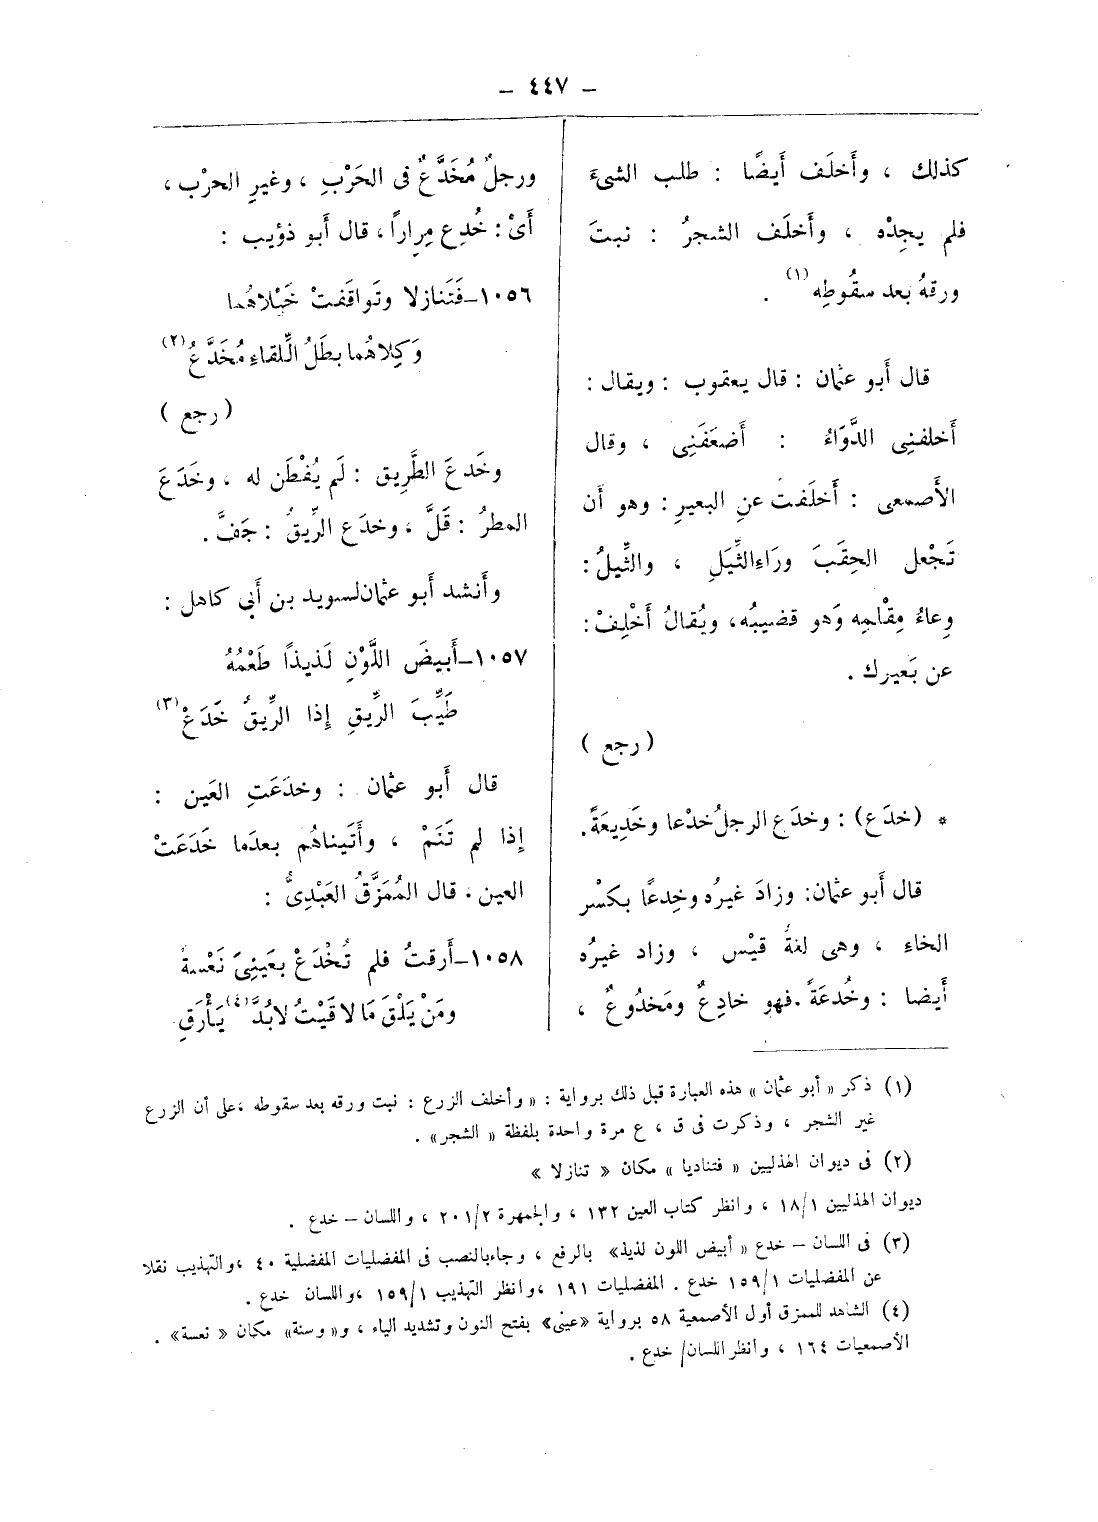 – ٤٤٧ –
كذلك ، وأَخلَف أَيضًا : طلب الشىءَ
فلم يجِدْه ، وأَخلَف الشجرُ : نبتَ
ورقهُ بعد سقُوطِه (١) .
قال أَبو عثمان : قال يعقوب : ويقال :
أَخلفنِى الدَّوَاءُ : أَضعَفَنِى ، وقال
الأَصمعى : أَخلَفتُ عنِ البعيرِ : وهو أَن
تَجْعل الحِقَبَ ورَاءَ الثِّيَلِ ، والثِّيلُ :
وِعاءُ مِقْلمِه وَهو قضيبُه، ويُقالُ أَخْلِفْ :
عن بَعيرك .
( رجع )
* (خدَع) : وخدَع الرجلُ خدْعا وخَدِيعَةً.
قال أَبو عثمان: وزادَ غيرُه وخِدعًا بكسْر
الخاءِ ، وهى لغةُ قيْس ، وزاد غيرُه
أَيضا : وخُدعَةً . فهو خادِعٌ ومَخدُوعٌ ،
ورجلٌ مُخَدَّعٌ فى الحَرْبِ ، وغيرِ الحرْب ،
أَىْ : خُدِع مِراراً ، قال أَبو ذؤيب :
١٠٥٦–فَتَنازلا وتَواقَفتْ خَيْلاهُما
وَكِلاهُما بطَلُ اللِّقاءِ مُخَدَّعُ (٢)
( رجع )
وخَدعَ الطَّرِيق : لَم يُفْطَن له ، وخَدَعَ
المطرُ : قَلَّ ، وخدَع الرِّيقُ : جَفَّ .
وأَنشد أَبو عثمان لسويد بن أَبى كاهل :
١٠٥٧–أَبيضَ اللَّوْنِ لَذيذًا طَعْمُهُ
طَيِّبَ الرِّيقِ إِذا الرِّيقُ خَدَعْ (٣)
قال أَبو عثمان : وخدَعَتِ العَين :
إِذا لم تَنَمْ ، وأَتَيناهُم بعدَما خَدَعَتْ
العين . قال المُمَزَّقُ العَبْدِىُّ :
١٠٥٨–أَرقتُ فلم تُخْدَعْ بعَينِىَ نَعْسةُ
ومَنْ يَلْقَ مَا لاقَيْتُ لابُدَّ (٤) يَأْرَقِ
(١) ذكر « أبو عثمان » هذه العبارة قبل ذلك برواية : « وأخلف الزرع : نبت ورقه بعد سقوطه ، على أن الزرع
غير الشجر ، وذكرت فى ق ، ع مرة واحدة بلفظة « الشجر» .
(٢) فى ديوان الهذليين « فتناديا » مكان « تنازلا »
ديوان الهذليين ١٨/١ ، وانظر كتاب العين ١٣٢ ، والجمهرة ٢٠١/٢ ، واللسان – خدع .
(٣) فى اللسان – خدع « أبيض اللون لذيذ» بالرفع ، وجاء بالنصب فى المفضليات المفضلية ٤٠ ، والتهذيب نقلا
عن المفضليات ١٥٩/١ خدع . المفضليات ١٩١ ، وانظر التهذيب ١٥٩/١ ، واللسان خدع .
(٤) الشاهد للممزق أول الأصمعية ٥٨ برواية «عينى» بفتح النون وتشديد الياء ، و« وسنة» مكان « نعسة» .
الأصمعيات ١٦٤ ، وانظر اللسان/ خدع .